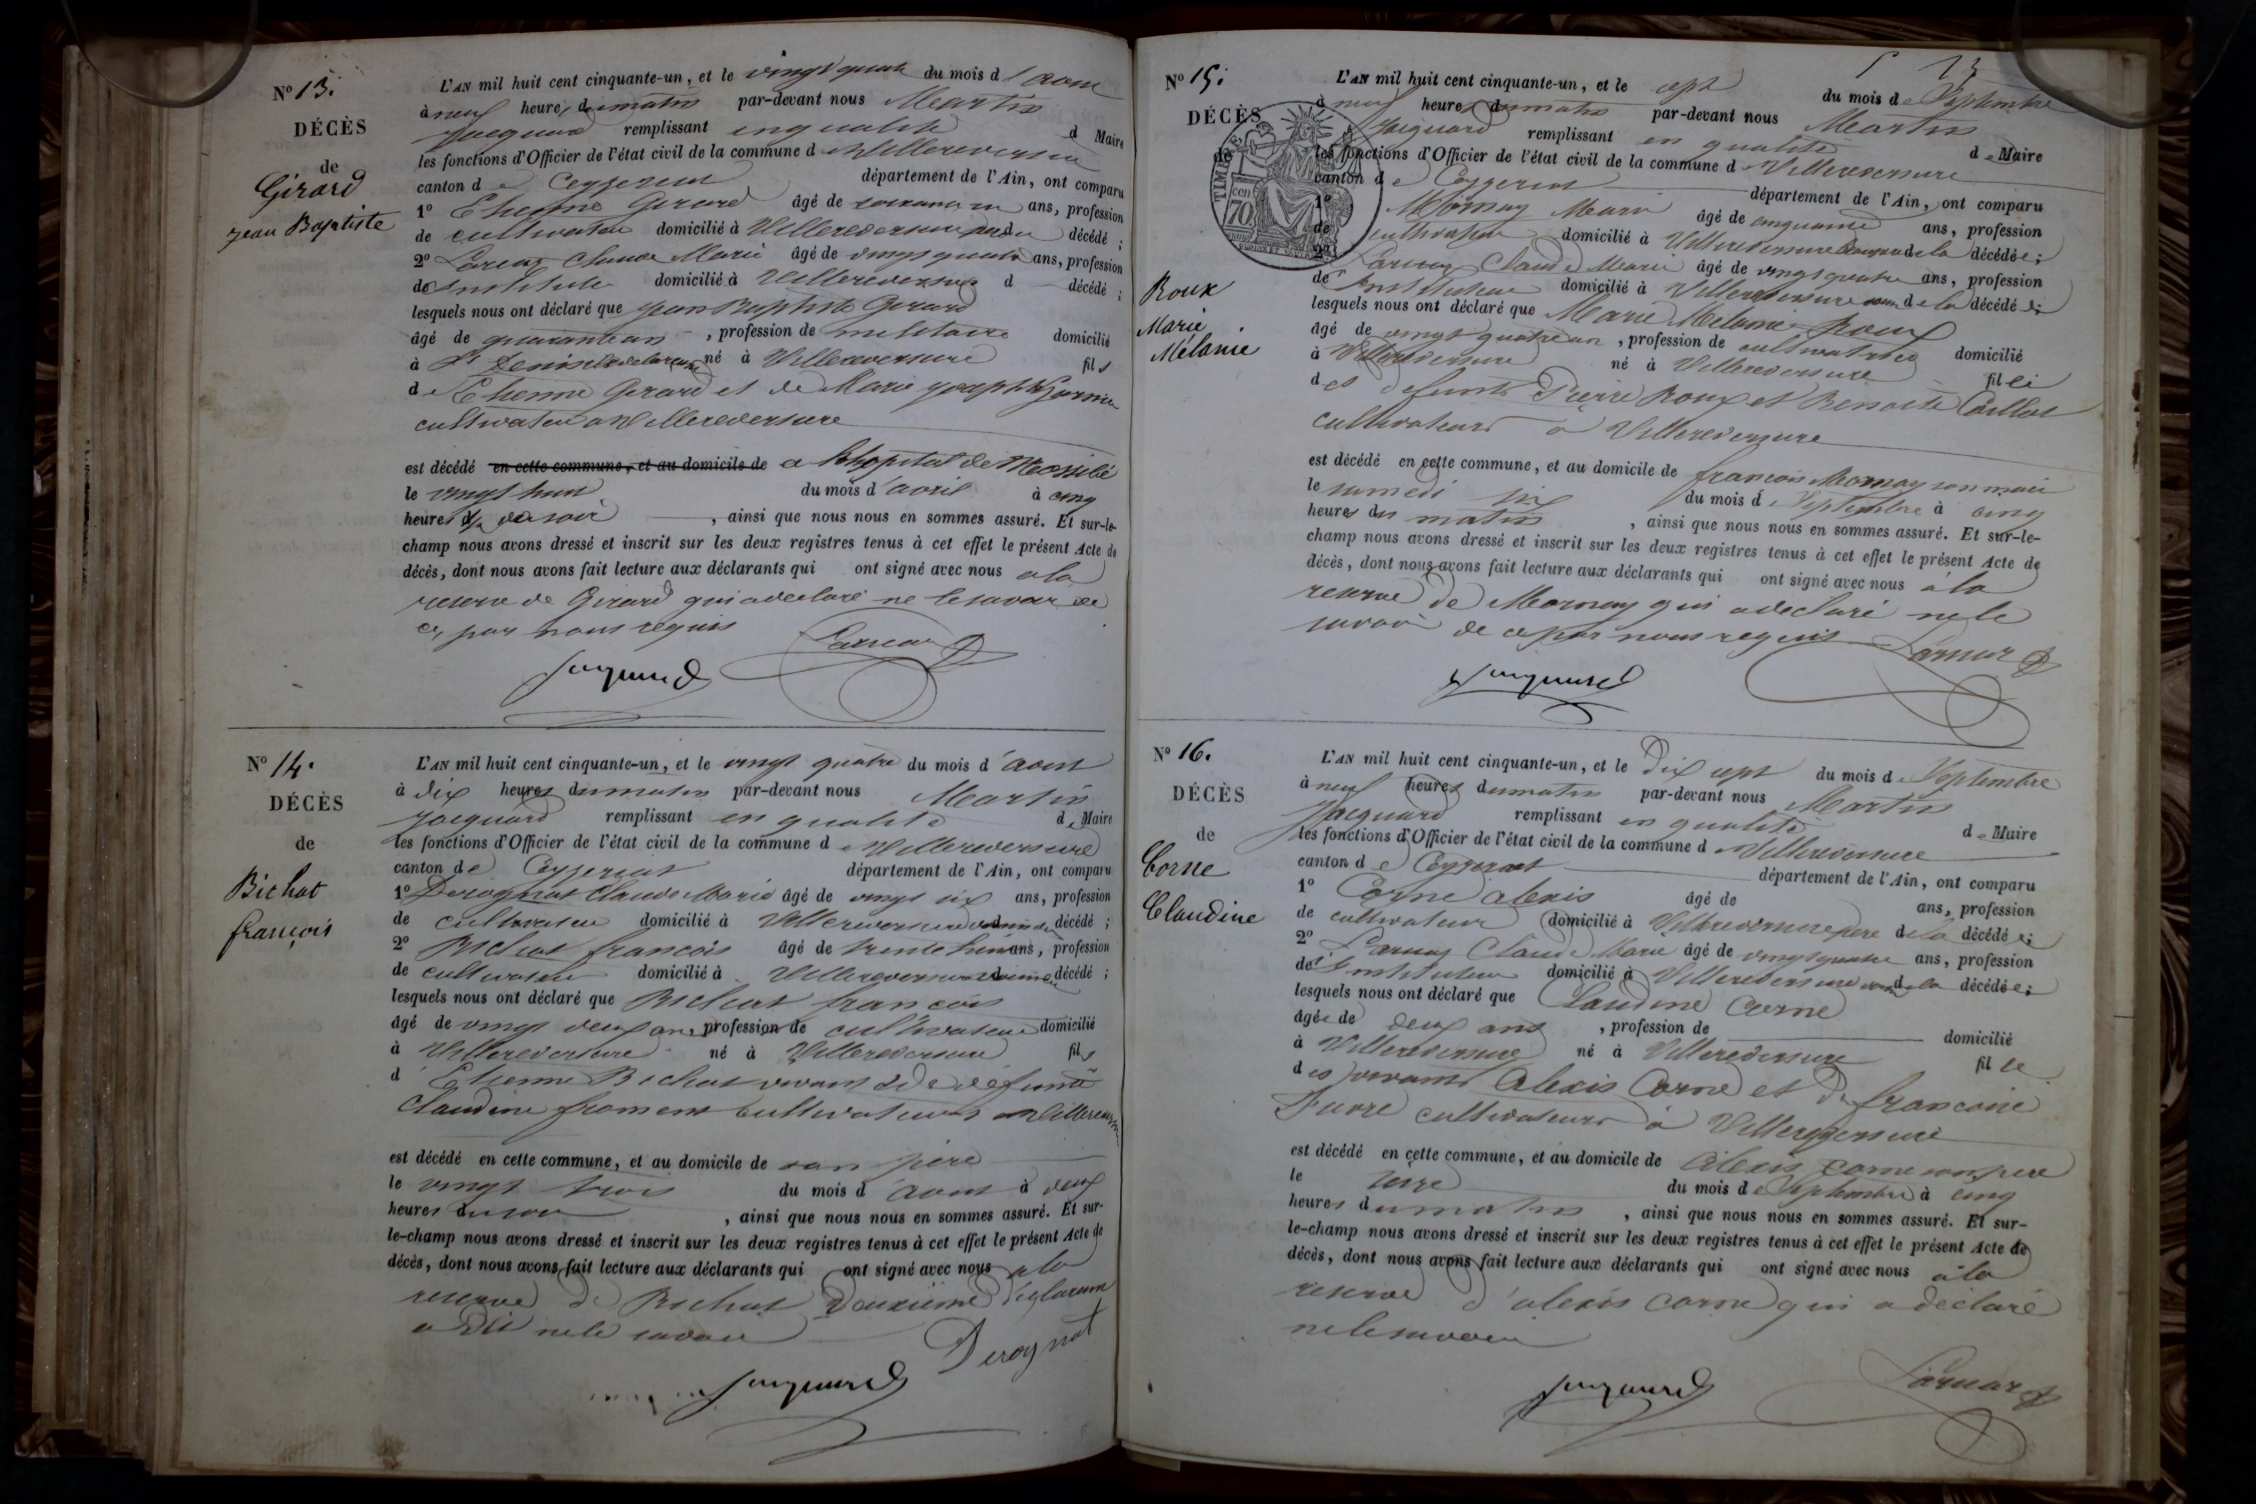 N° 13.
DÉCÈS
de
Girard
Jean Baptiste
L'AN mil huit cent cinquante-un, et le vingt quatre du mois d'aout
à neuf heures du matin par-devant nous Martin
Jacquard remplissant en qualité de Maire
les fonctions d'Officier de l'état civil de la commune de Villereversure
canton de Ceyzeriat département de l'Ain, ont comparu
1° Etienne Girard âgé de ans, profession
de cultivateur domicilié à Villereversure décédé ;
2° Claude Marie âgé de vingt quatre ans, profession
de domicilié à Villereversure d décédé ;
lesquels nous ont déclaré que Jean Baptiste Girard
âgé de quarante ans, profession de militaire domicilié
à St Denis né à Villereversure fils
de Etienne Girard et de Marie
cultivateur a Villereversure
est décédé en cette commune, et au domicile de a l'hopital de
le vingt huit du mois d'avril à cinq
heures du soir, ainsi que nous nous en sommes assuré. Et sur-le-
champ nous avons dressé et inscrit sur les deux registres tenus à cet effet le présent Acte de
décès, dont nous avons fait lecture aux déclarants qui ont signé avec nous a la
reserve de Girard qui a declaré ne le savoir de
ce par nous requis
Jacquard
N° 14.
DÉCÈS
de
Bichat
françois
L'AN mil huit cent cinquante-un, et le vingt quatre du mois d'aout
à dix heures du matin par-devant nous Martin
Jacquard remplissant en qualité de Maire
les fonctions d'Officier de l'état civil de la commune de Villereversure
canton de Ceyzeriat département de l'Ain, ont comparu
1° Derognat Claude Marie âgé de vingt six ans, profession
de cultivateur domicilié à Villereversure décédé ;
2° Bichat françois âgé de trente ans, profession
de cultivateur domicilié à Villereversure décédé ;
lesquels nous ont déclaré que Bichat françois
âgé de vingt deux ans, profession de cultivateur domicilié
à Villereversure né à Villereversure fils
d'Etienne Bichat vivant et de défunte
Claudine froment cultivateurs a Villereversure
est décédé en cette commune, et au domicile de son père
le vingt trois du mois d'aout à deux
heures du soir, ainsi que nous nous en sommes assuré. Et sur-
le-champ nous avons dressé et inscrit sur les deux registres tenus à cet effet le présent Acte de
décès, dont nous avons fait lecture aux déclarants qui ont signé avec nous a la
reserve de Bichat Deuxième déclarant
a dit ne le savoir
Derognat
Jacquard
13
N° 15.
DÉCÈS
de
Roux
Marie
Mélanie
TIMBRE
70
L'AN mil huit cent cinquante-un, et le sept du mois de Septembre
à neuf heures du matin par-devant nous Martin
Jacquard remplissant en qualité de Maire
les fonctions d'Officier de l'état civil de la commune de Villereversure
canton de Ceyzeriat département de l'Ain, ont comparu
1° Mornay Marie âgé de cinquante ans, profession
de cultivateur domicilié à Villereversure de la décédée ;
2° Claude Marie âgé de vingt quatre ans, profession
de Instituteur domicilié à Villereversure de la décédée ;
lesquels nous ont déclaré que Marie Melanie Roux
âgé de vingt quatre ans, profession de cultivatrice domicilié
à Villereversure né à Villereversure fille
des defunts Pierre Roux et Benoite
cultivateurs à Villereversure
est décédé en cette commune, et au domicile de françois Mornay son mari
le samedi six du mois de Septembre à cinq
heures du matin, ainsi que nous nous en sommes assuré. Et sur-le-
champ nous avons dressé et inscrit sur les deux registres tenus à cet effet le présent Acte de
décès, dont nous avons fait lecture aux déclarants qui ont signé avec nous à la
reserve de Mornay qui a declaré ne le
savoir de ce par nous requis
Jacquard
N° 16.
DÉCÈS
de
Corne
Claudine
L'AN mil huit cent cinquante-un, et le Dix sept du mois de Septembre
à neuf heures du matin par-devant nous Martin
Jacquard remplissant en qualité de Maire
les fonctions d'Officier de l'état civil de la commune de Villereversure
canton de Ceyzeriat département de l'Ain, ont comparu
1° Corne alexis âgé de ans, profession
de cultivateur domicilié à Villereversure père de la décédée ;
2° Claude Marie âgé de vingt quatre ans, profession
de Instituteur domicilié à Villereversure de la décédée ;
lesquels nous ont déclaré que Claudine Corne
âgée de deux ans, profession de domicilié
à Villereversure né à Villereversure fille
des vivants Alexis Corne et De francoise
cultivateurs à Villereversure
est décédé en cette commune, et au domicile de Alexis Corne son père
le seize du mois de Septembre à cinq
heures du matin, ainsi que nous nous en sommes assuré. Et sur-
le-champ nous avons dressé et inscrit sur les deux registres tenus à cet effet le présent Acte de
décès, dont nous avons fait lecture aux déclarants qui ont signé avec nous à la
reserve d'alexis Corne qui a déclaré
ne le savoir
Jacquard